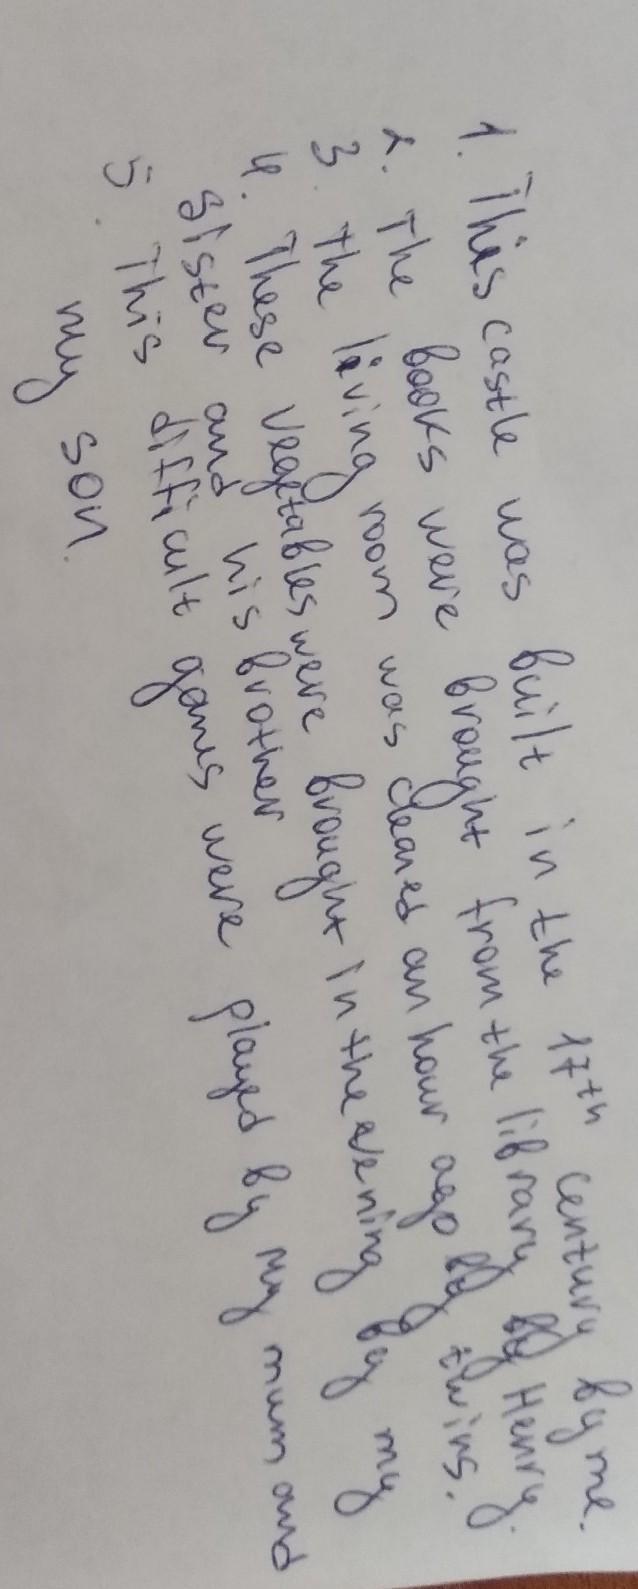 1. This castle was built in the 17th century by me.
2. The books were brought from the library by Henry.
3. The living room was cleaned an hour ago by twins.
4. These vegetables were brought in the evening by my
sister and his brother
5. This difficult games were played by my mum and
my son.